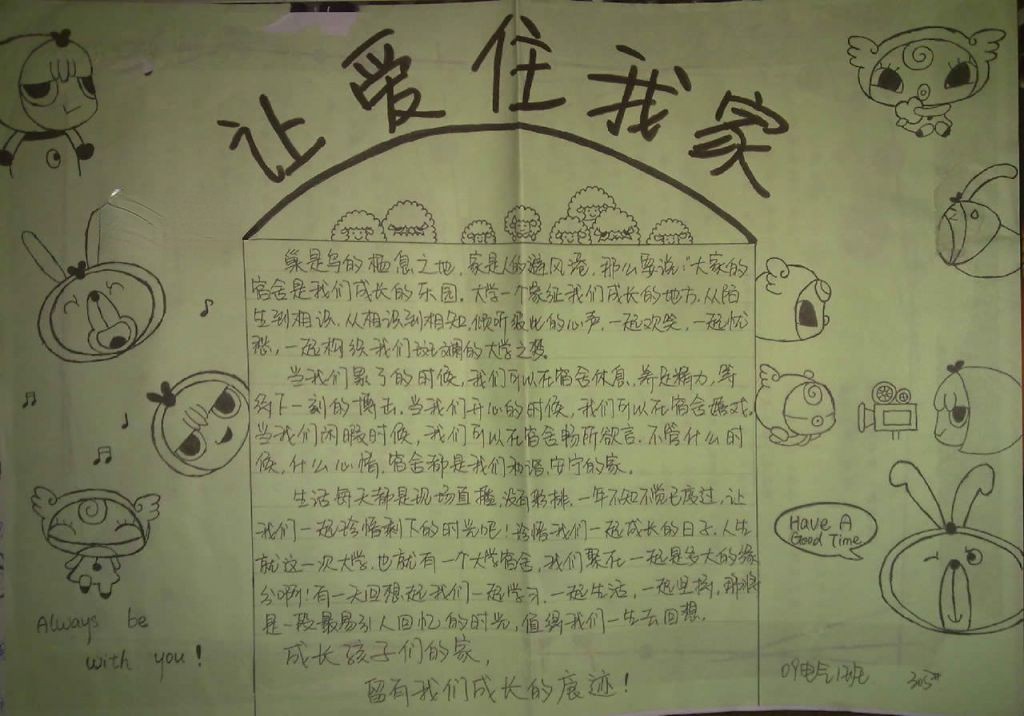 让爱住我家
巢是鸟的栖息之地，家是人的避风港，那么要说："大家的
宿舍是我们成长的乐园。大学一个象征我们成长的地方，从陌
生到相识，从相识到相知，倾听彼此的心声，一起欢笑，一起忧
愁，一起构织我们斑斓的大学之梦。
当我们累了的时候，我们可以在宿舍休息，养足精力，等
待下一刻的搏击。当我们开心的时候，我们可以在宿舍嬉戏，
当我们闲暇时候，我们可以在宿舍畅所欲言。不管什么时
候，什么心情，宿舍都是我们和谐，安宁的家。
生活每天都是现场直播，没有彩排，一年不知不觉已度过，让
我们一起珍惜剩下的时光吧！珍惜我们一起成长的日子，人生
就这一次大学，也就有一个大学宿舍，我们聚在一起是多大的缘
分啊！有一天回想起我们一起学习，一起生活，一起坚持，那将
是一段最易引人回忆的时光，值得我们一生去回想。
成长孩子们的家，
留有我们成长的痕迹！
Always be
with you!
Have A
Good Time
09电气1班 305#